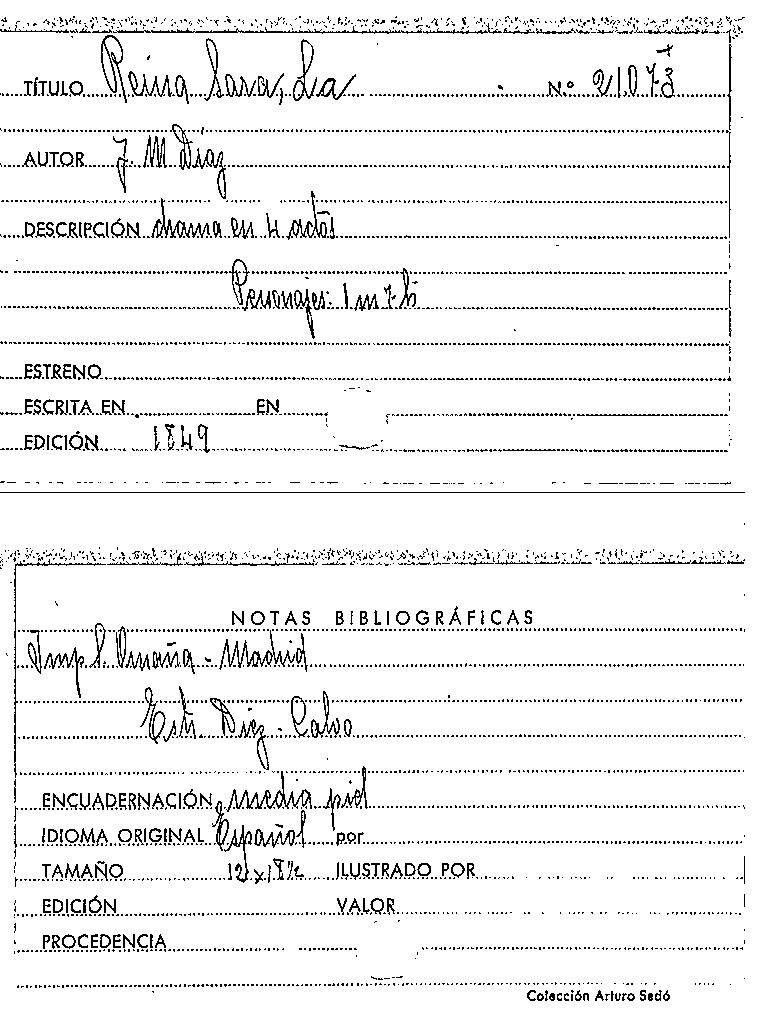 TÍTULO Reina Sara, La N.º 21073
AUTOR J. M Díaz
DESCRIPCIÓN drama en 4 actos
Personajes: 1 m 7 h
ESTRENO
ESCRITA EN EN
EDICIÓN 1849
NOTAS BIBLIOGRÁFICAS
Imp S. Omaña - Madrid
Diez - Calvo
ENCUADERNACIÓN media piel
IDIOMA ORIGINAL Español por
TAMAÑO 12 x 18½ ILUSTRADO POR
EDICIÓN VALOR
PROCEDENCIA
Colección Arturo Sedó